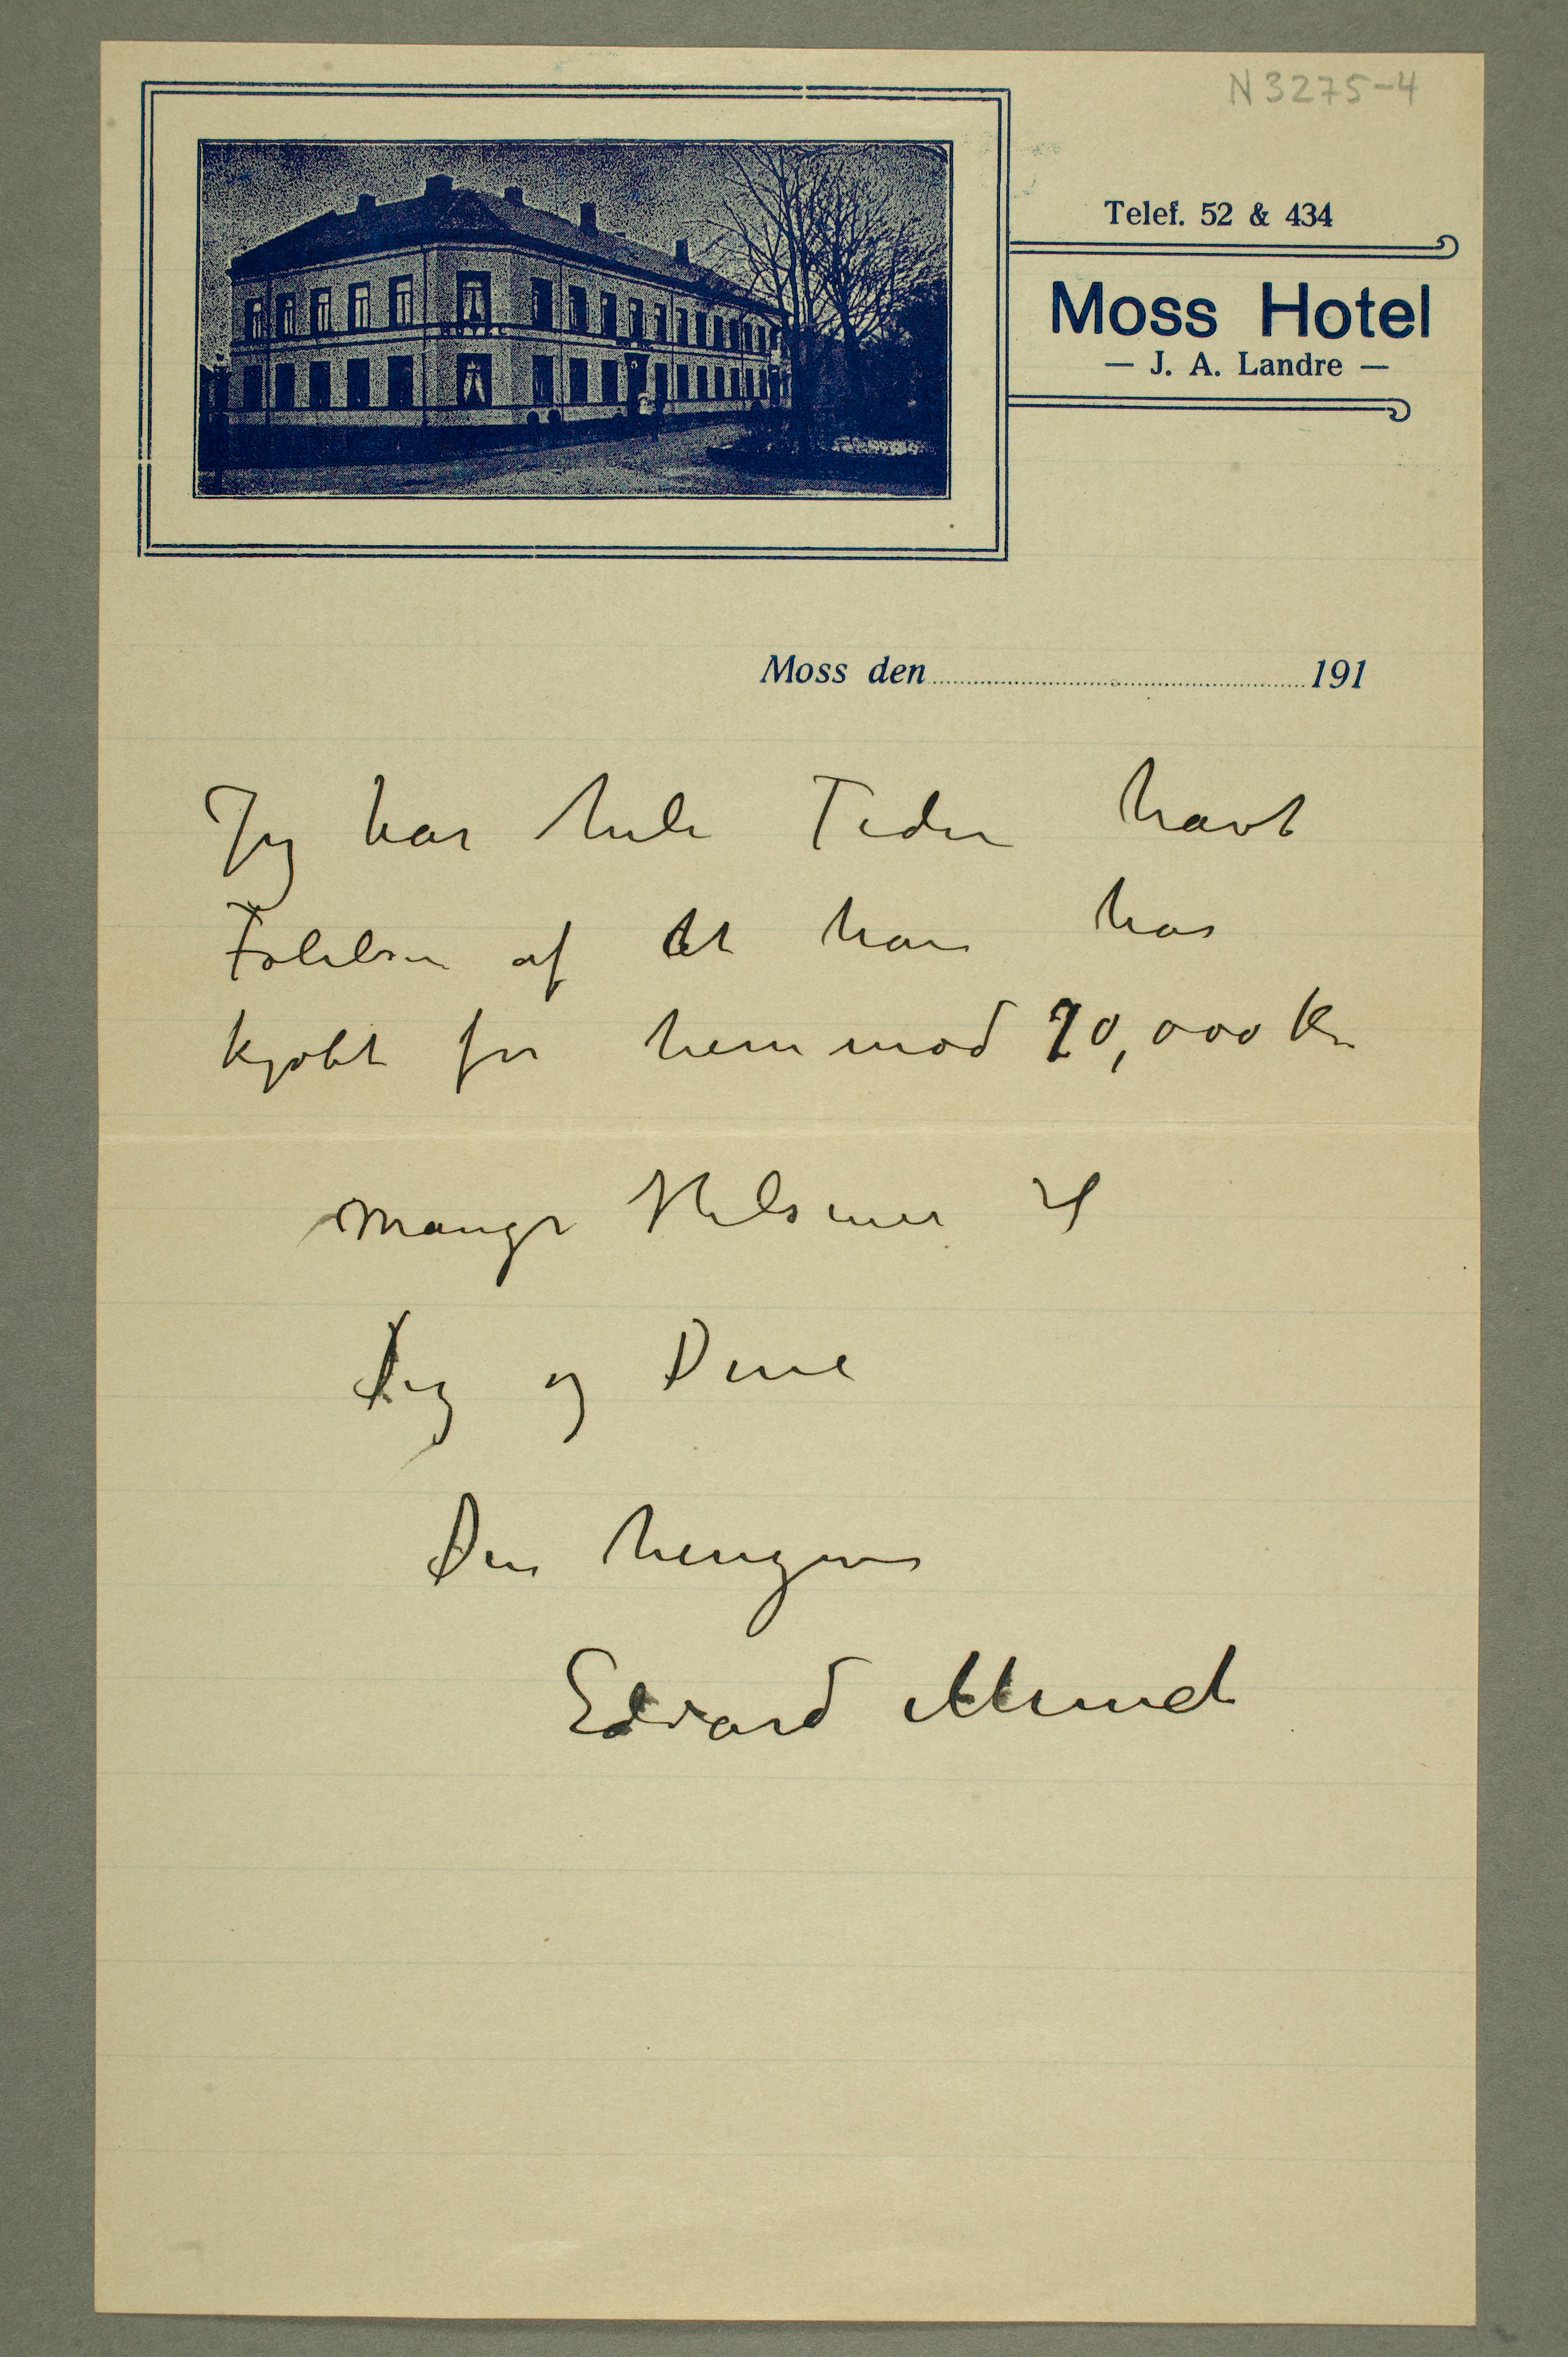 N 3275-4
Telef. 52 & 434
Moss Hotel
— J. A. Landre —
Moss den 191
Jeg har hele Tiden havt
Følelsen af at han har
kjøbt for henimod 70,000 Kr
Mange Hilsener til
Dig og Dine
Din hengivne
Edvard Munch